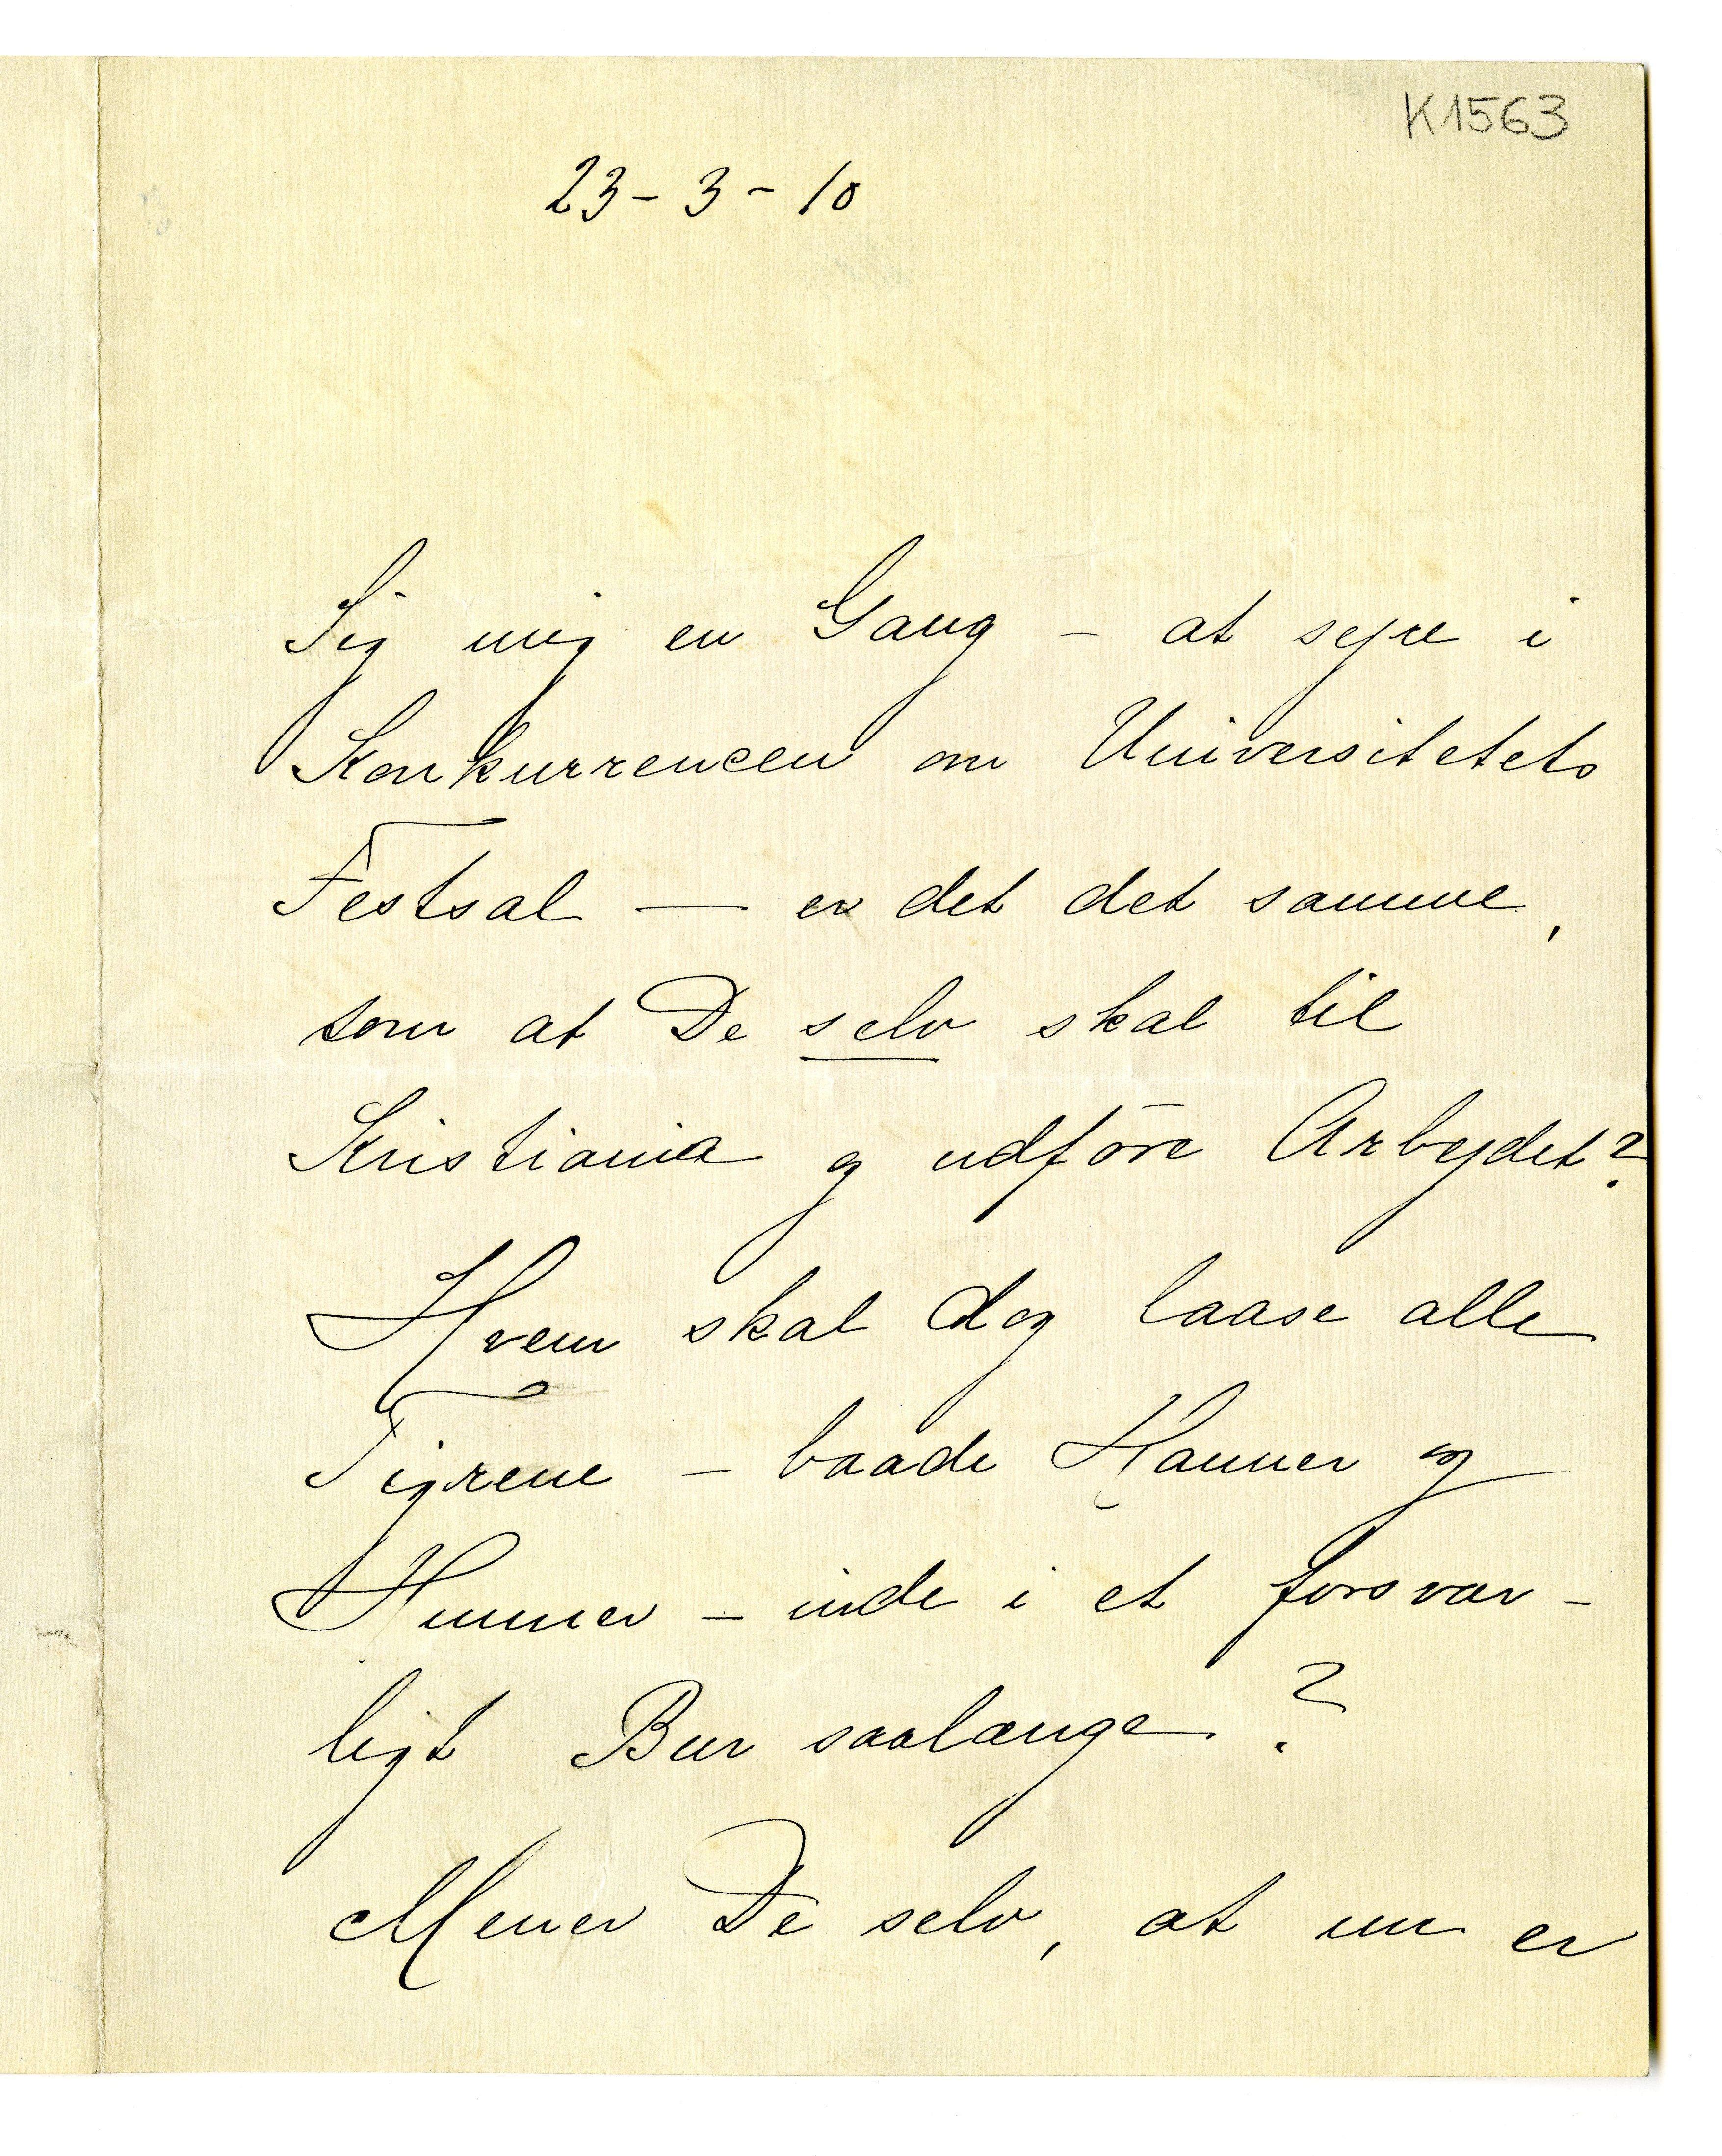 K1563
23 - 3 - 10
Sig mig en Gang - at sejre i
Konkurrencen om Universitetets
Festsal — er det det samme,
som at De selv skal til
Kristiania og udføre Arbejdet?
Hvem skal dog laase alle
Tigrene - baade Hanner og
Hunner - inde i et forsvar-
ligt Bur saalænge?
Mener De selv, at nu er